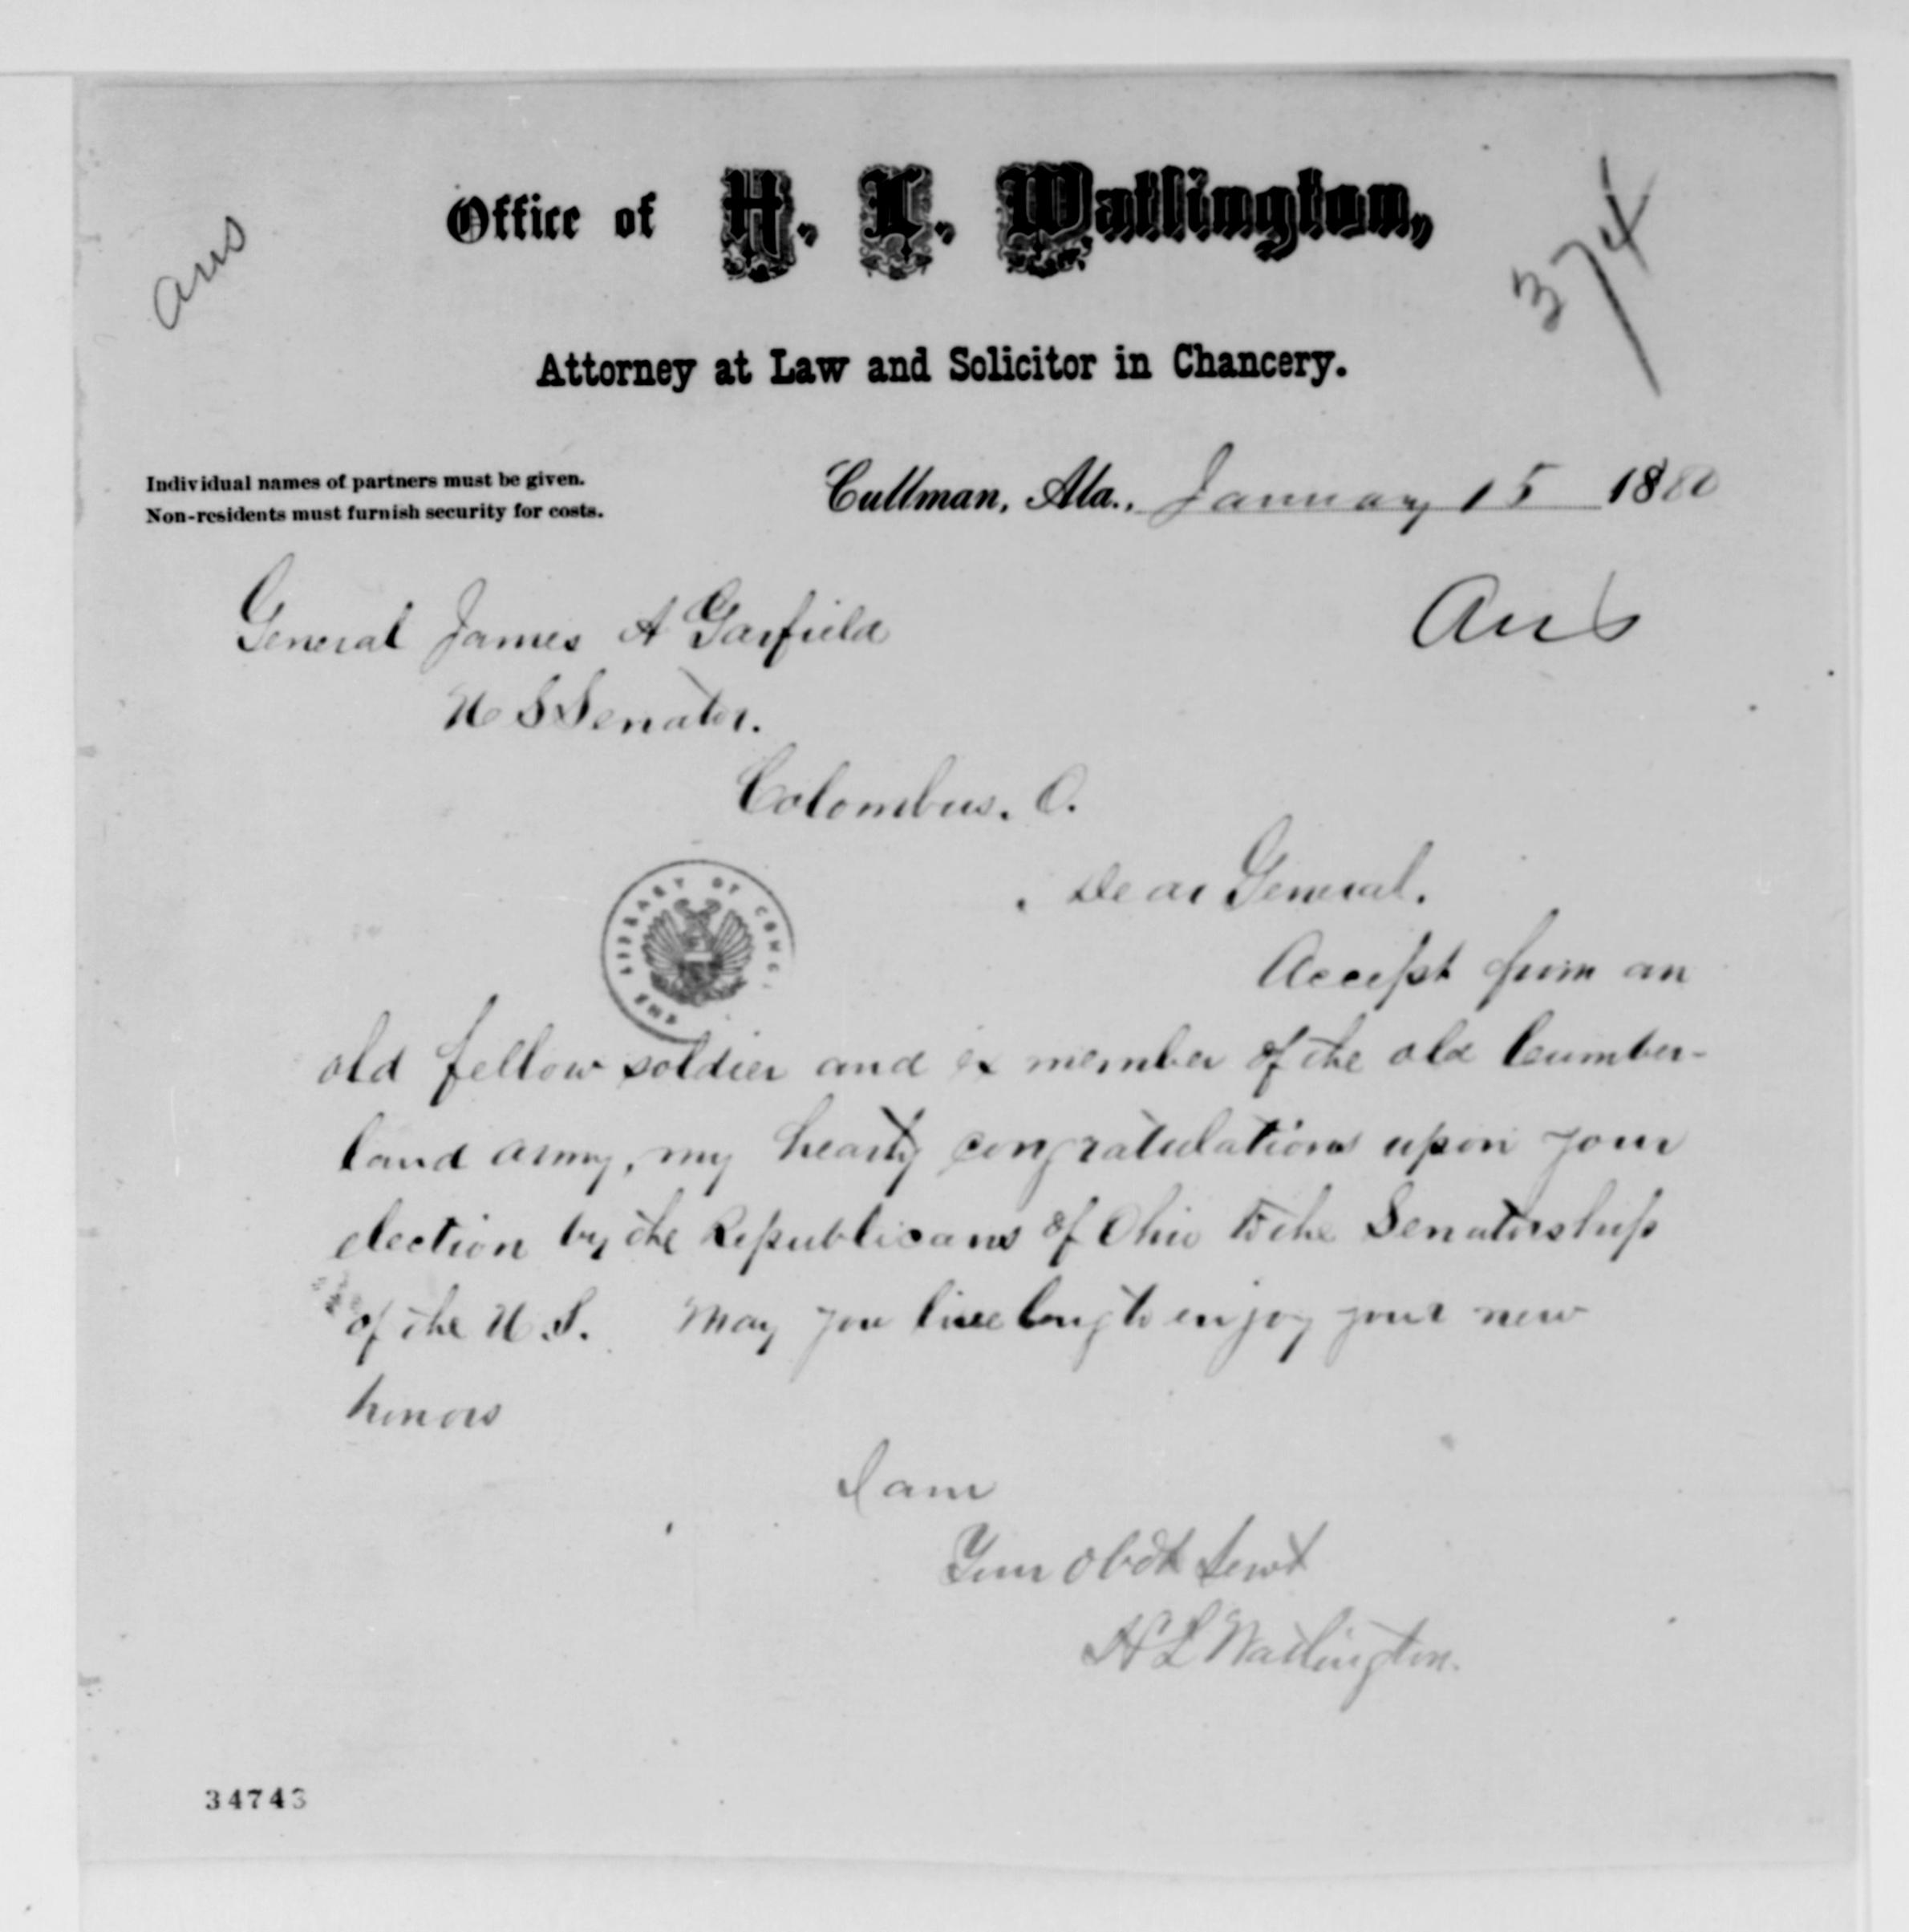 Office of H. L. Watlington,
Ans
374
Attorney at Law and Solicitor in Chancery.
Individual names of partners must be given.
Non-residents must furnish security for costs.
Cullman, Ala., January 15 1880
Ans
General James A Garfield
U S Senator.
Colombus. O.
Dear General.
THE LIBRARY OF CONG
Accept from an
old fellow soldier and ex member of the old Cumber-
land army, my hearty congratulations upon your
election by the Republicans of Ohio to the Senatorship
of the U.S. May you live long to enjoy your new
honors
I am
Your obdt Servt
H L Watlington.
34743